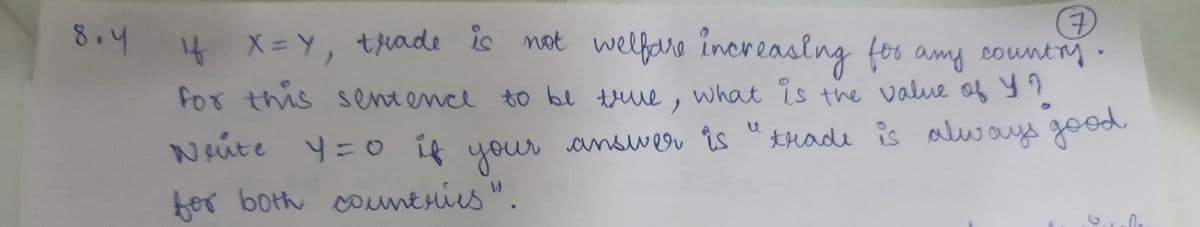 7
8.4 If X=Y, trade is not welfare increasing for any country.
For this sentence to be true, what is the value of Y?
Write Y=0 if your answer is "trade is always good
for both countries".